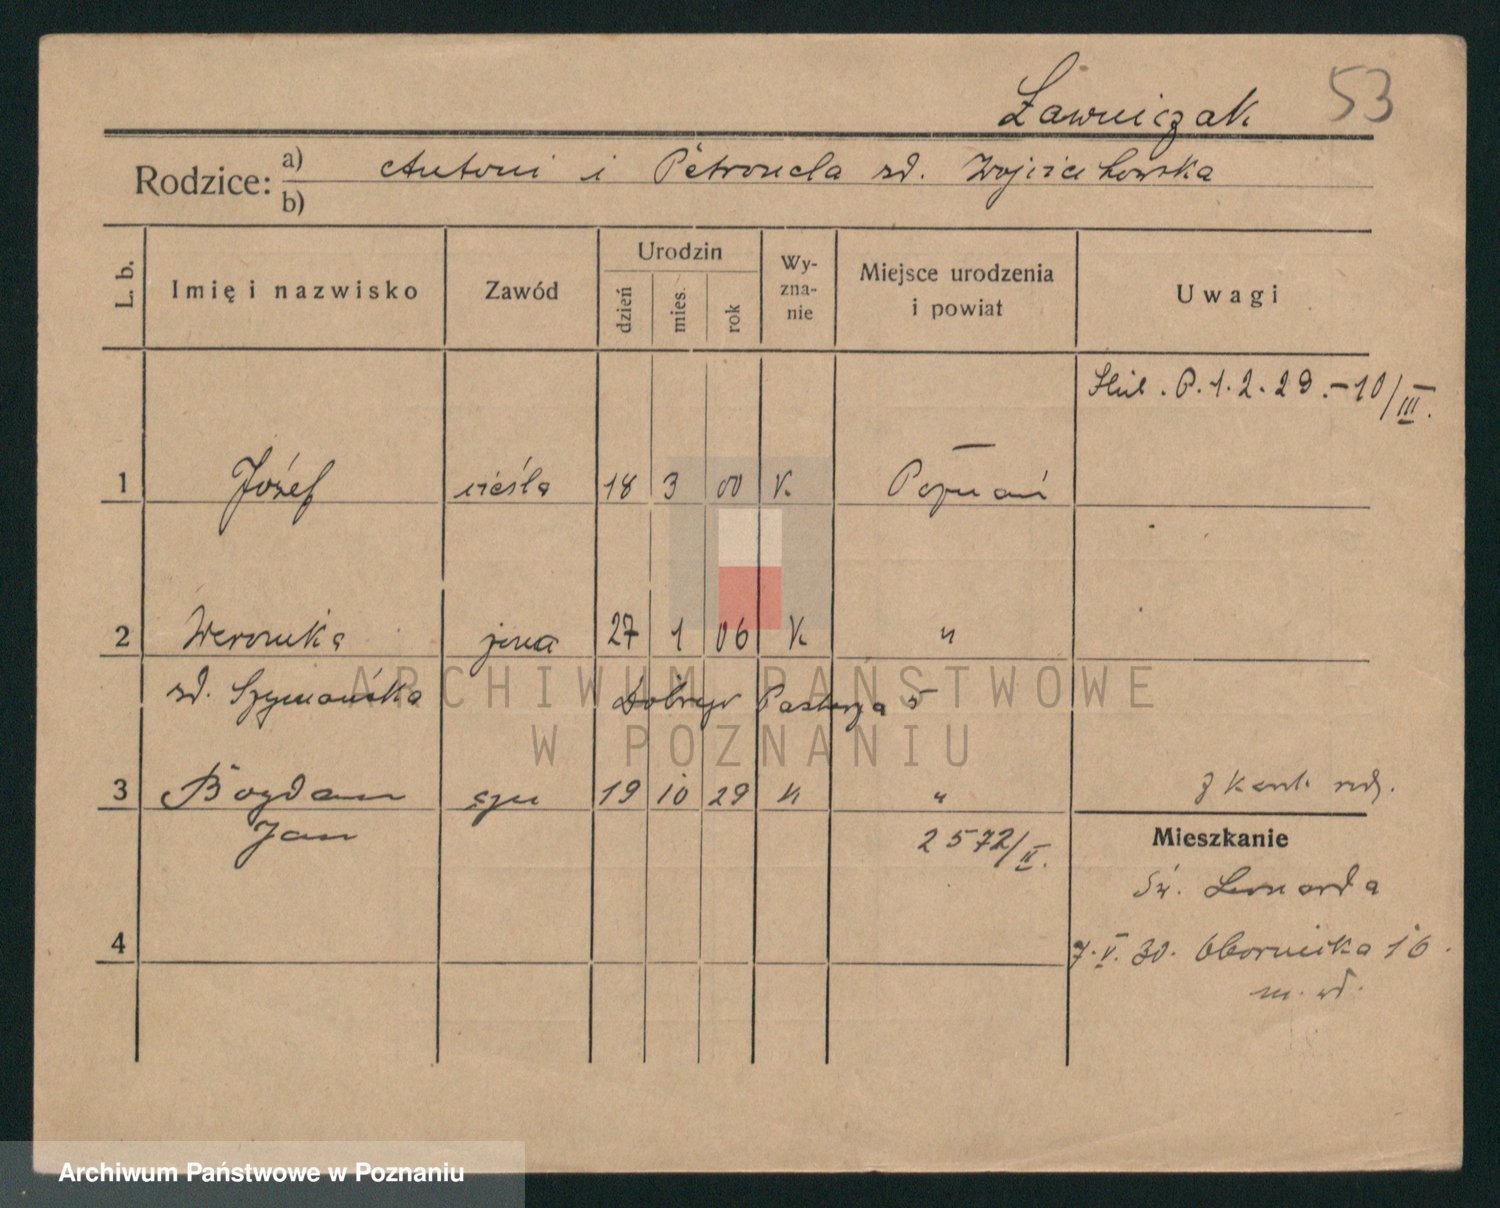 Ławniczak 53
Rodzice: a) Antoni i Petronela zd. Wojciechowska
b)
L. b. Imię i nazwisko Zawód Urodzin dzień mies. rok Wy-zna-nie Miejsce urodzenia i powiat Uwagi
Ślub. P. 1. 2. 29. – 10/III.
1 Józef cieśla 18 3 00 K. Poznań
2 Weronika żona 27 1 06 K. "
zd. Szymańska Dobrego Pasterza 5
3 Bogdan syn 19 10 29 " " z kart. rodz.
Jan 2572/II.
Mieszkanie
Św. Leonarda
4
7.V.30. Obornicka 16.
m. wł.
ARCHIWUM PAŃSTWOWE
W POZNANIU
Archiwum Państwowe w Poznaniu